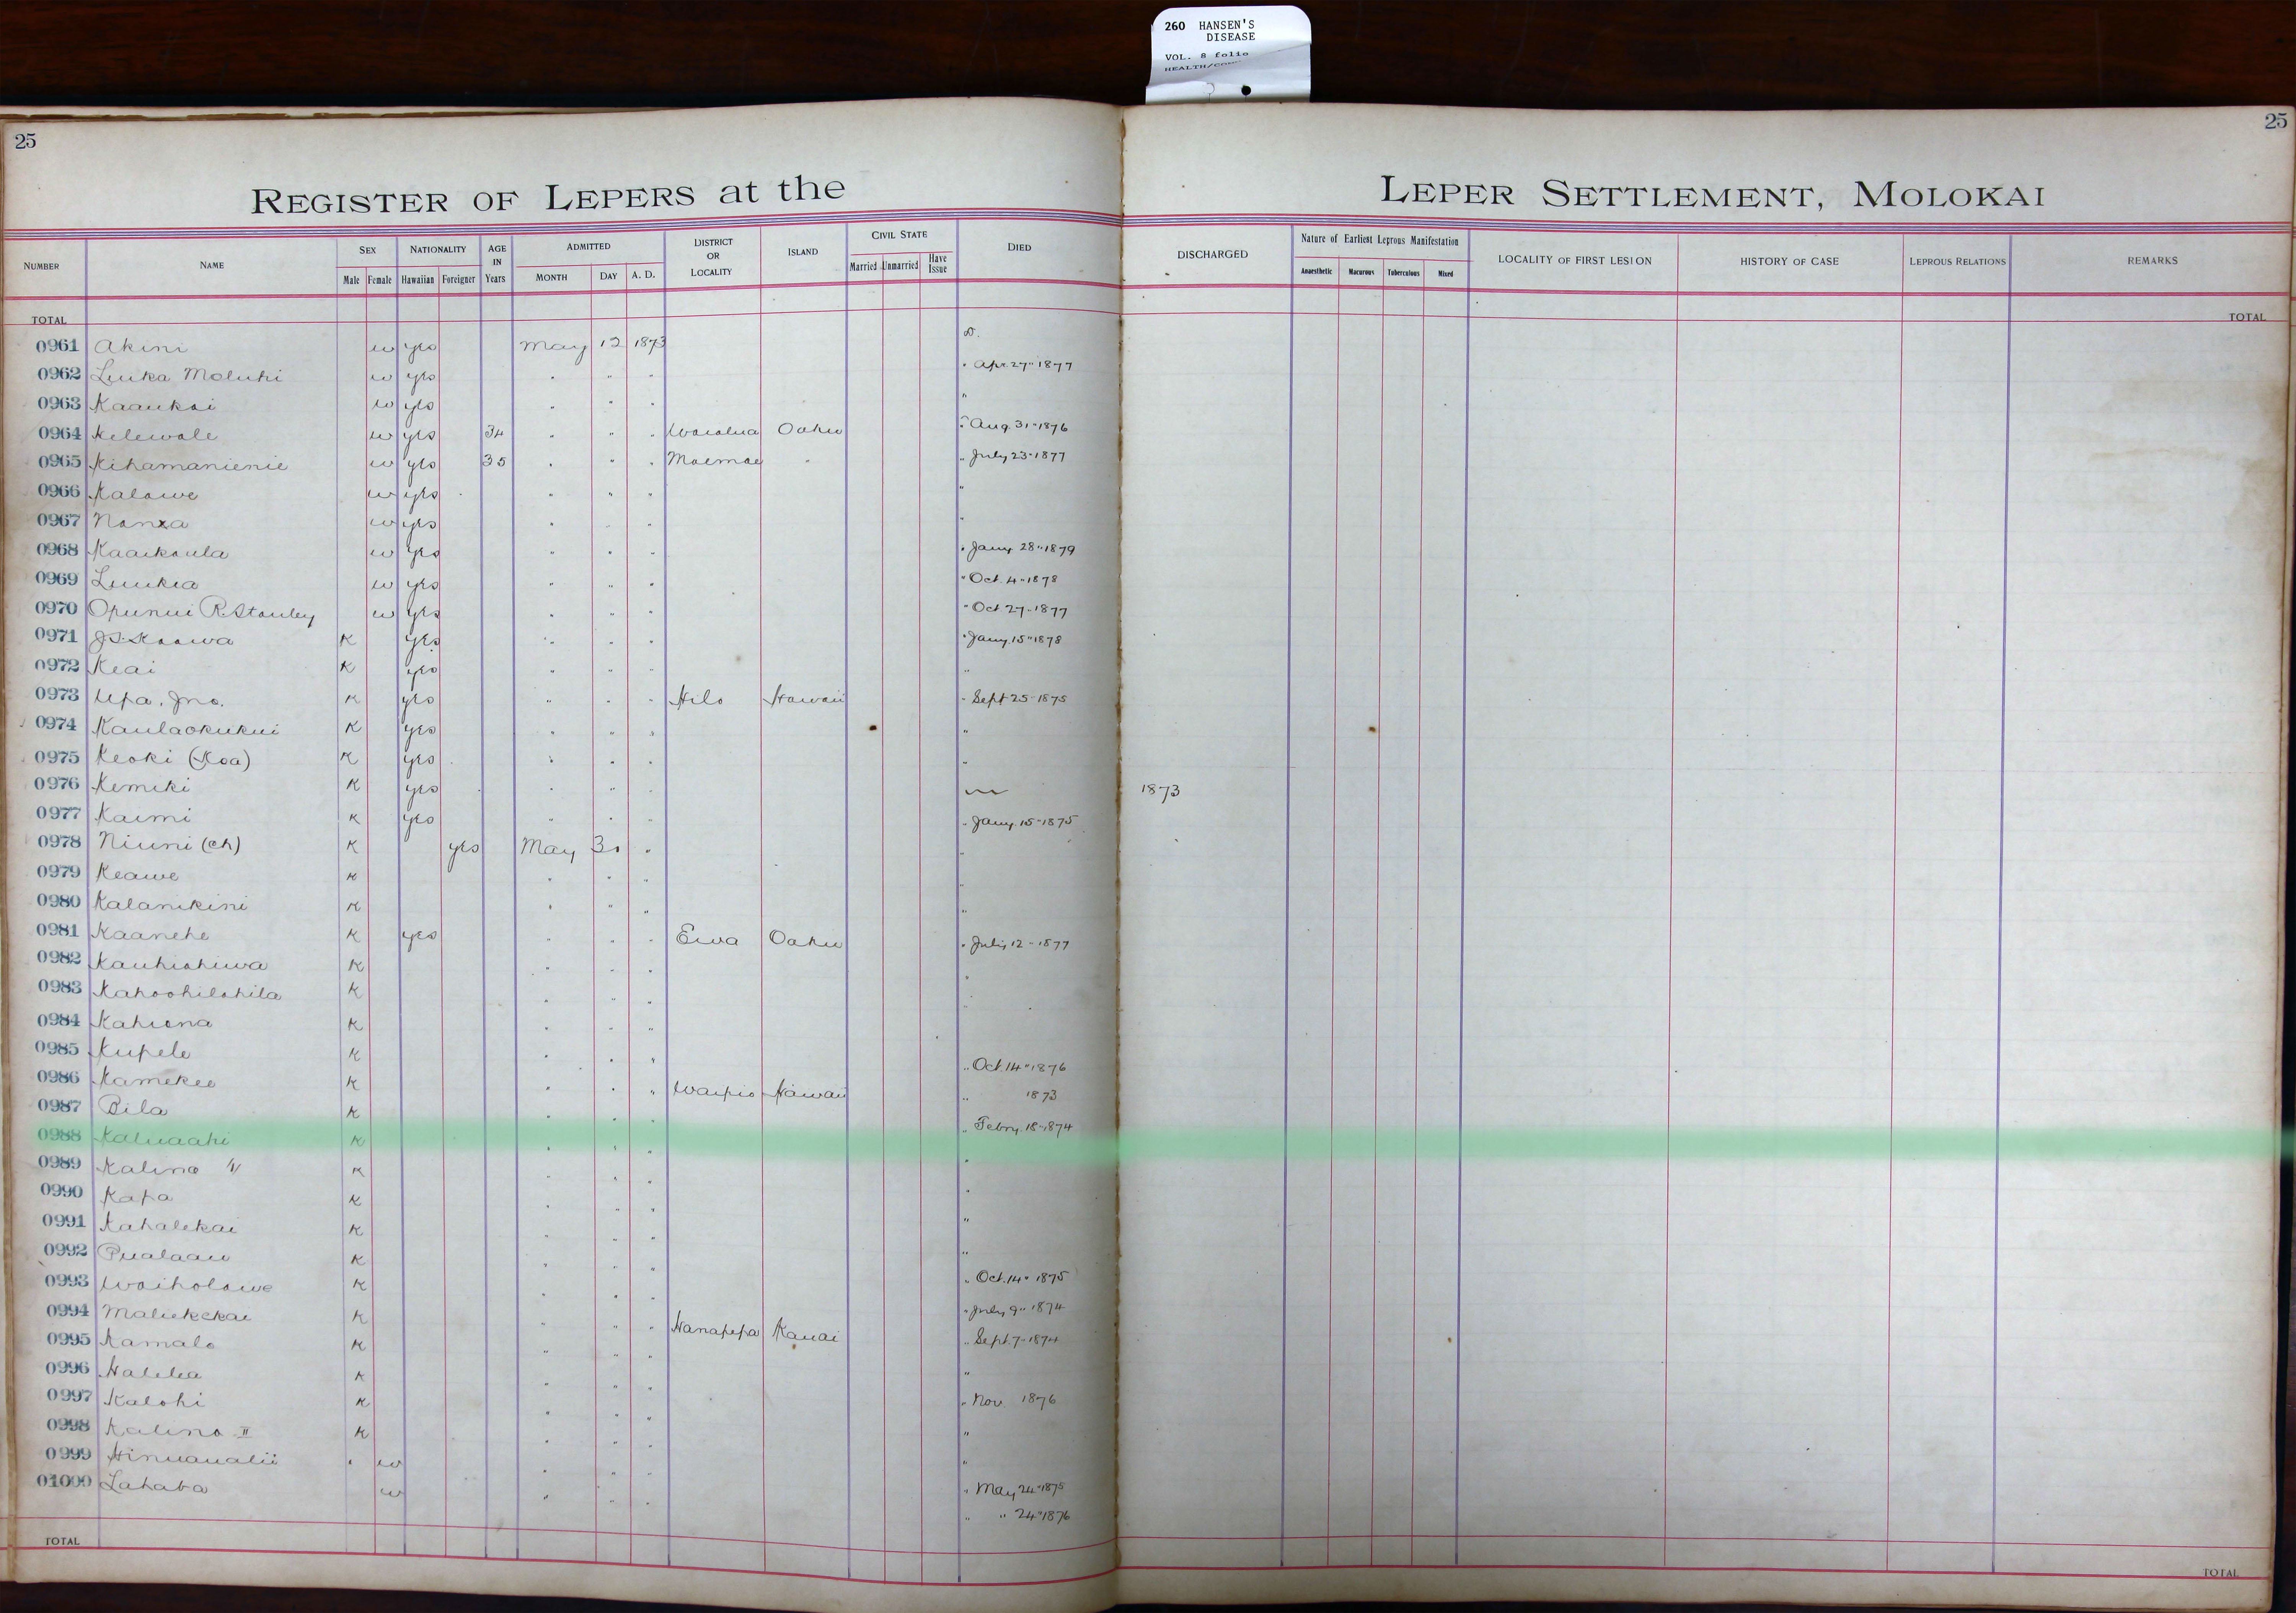 260 HANSEN'S
DISEASE
VOL. 8 folio
25
25
REGISTER OF LEPERS at the LEPER SETTLEMENT, MOLOKAI
NUMBER NAME SEX Male Female NATIONALITY Hawaiian Foreigner AGE IN Years ADMITTED MONTH DAY A. D. DISTRICT OR LOCALITY ISLAND CIVIL STATE Married Unmarried Have Issue DIED DISCHARGED Nature of Earliest Leprous Manifestation Anaesthetic Macurous Tuberculous Mixed LOCALITY OF FIRST LESION HISTORY OF CASE LEPROUS RELATIONS REMARKS
TOTAL TOTAL
0961 Akini w yes May 12 1873 D.
0962 Luika Moluhi w yes " " " " Apr. 27" 1877
0963 Kaaukai w yes " " " "
0964 Kelewale w yes 34 " " " Waialua Oahu " Aug. 31" 1876
0965 Kihamanienie w yes 35 " " " Moemoe " " July 23" 1877
0966 Kalawe w yes " " " "
0967 w yes " " " "
0968 Kaaikaula w yes " " " " Jany. 28" 1879
0969 Luukia w yes " " " " Oct. 4" 1878
0970 Opunui R. Stanley w yes " " " " Oct 27" 1877
0971 J.S. Kaawa K yes " " " " Jany. 15" 1878
0972 Keai K yes " " " "
0973 Upa. Jno. K yes " " " Hilo Hawaii " Sept 25" 1875
0974 Kaulaokukui K yes " " " "
0975 Keoki (Koa) K yes " " " "
0976 Kemiki K yes " " " 1873
0977 Kaimi K yes " " " " Jany. 15" 1875
0978 Niuni (Ch) K yes May 30 " "
0979 Keawe K " " " "
0980 Kalanikini K " " " "
0981 Kaanehe K yes " " " Ewa Oahu " July 12" 1877
0982 Kauhiohiwa K " " " "
0983 Kahoohilohila K " " " "
0984 Kahiona K " " "
0985 Kupele K " " " " Oct. 14" 1876
0986 Kamekeo K " " " Waipio Hawaii " 1873
0987 Pila K " " " " Febry. 18" 1874
0988 Kaluaahi K " " " "
0989 Kalino K " " " "
0990 Kapa K " " " "
0991 Kahalekai K " " " "
0992 Pualaau K " " " " Oct. 14" 1875
0993 Waiholowe K " " " " July 9" 1874
0994 Maliekekai K " " " Hanapepa Kauai " Sept. 7" 1874
0995 Kamalo K " " " "
0996 Halelea K " " " " Nov. 1876
0997 Kalohi K " " " "
0998 Kalino II K " " " "
0999 Hinuaualii w " " " " May 24" 1875
01000 Lahaba w " " " " " 24" 1876
TOTAL TOTAL